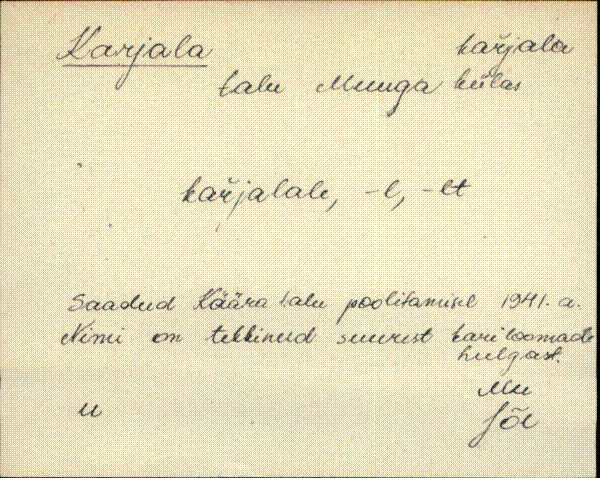 Karjala karjala
talu Muuga külas
karjalale, -l, -lt
Saadud Käära talu poolitamisel 1941. a.
Nimi on tekkinud suurest kariloomade
hulgast.
Mu
u Jõe